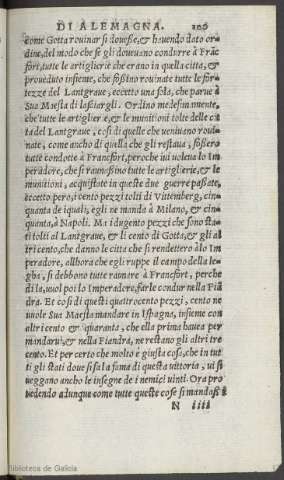 DI ALEMAGNA. 100
come Gotta rouinar si douesse, & hauendo dato or
dine, del modo che si gli doueuano condurre à Frãc
fort, tutte le artiglierie che erano in quella citta, &
proueduto insieme, che fossino rouinate tutte le for
tezze del Lantgraue, eccetto una sola, che parue à
Sua Maesta di lassiargli. Ordino medesimamente,
che tutte le artiglierie, & le munitioni tolte delle cit
ta del Lantgraue, cosi di quelle che ueniuano roui-
nate, come ancho di quella che gli restaua, fossero
tutte condotte à Francfort, peroche iui uoleua lo Im
peradore, che si raunassino tutte le artiglierie, & le
munitioni, acquistate in queste due guerre passate,
eccetto pero, i cento pezzi tolti di Vittenberg, cin-
quanta de iquali, egli ne manda à Milano, & cin-
quanta, à Napoli. Ma i dugento pezzi che sono sta-
ti tolti al Lantgraue, & li cento di Gotta, & gli al
tri cento, che danno le citta che si rendettero à lo Im
peradore, allhora che egli ruppe il campo della le-
gha, si debbono tutte raunare à Francfort, perche
di la, uuol poi lo Imperadore, farle condur nella Fiã
dra. Et cosi di questi quattrocento pezzi, cento ne
uuole Sua Maesta mandare in Ispagna, insieme con
altri cento & quaranta, che ella prima hauea per
mandarui, & nella Fiandra, ne restano gli altri tre
cento. Et per certo che molto è giusta cosa, che in tut
ti gli stati doue si sa la fama di questa uittoria, ui si
ueggano anchor le insegne de i nemici uinti. Ora pro
uedendo adunque come tutte queste cose si mandass
N iiii
Biblioteca de Galicia